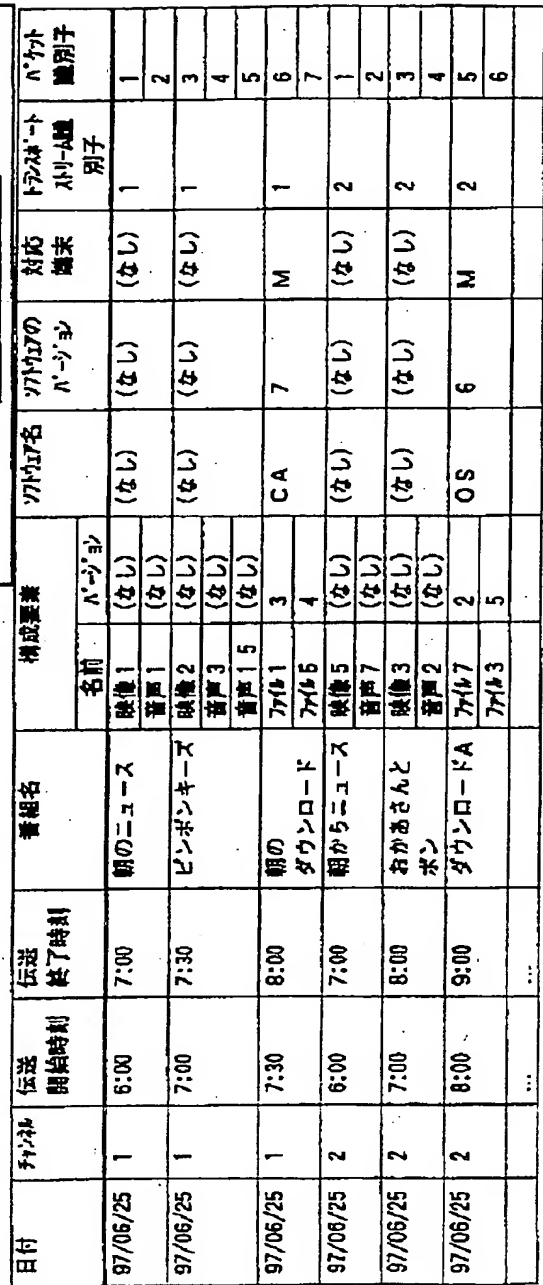 日付 チャンネル 伝送開始時刻 伝送終了時刻 番組名 構成要素 ソフトウェア名 ソフトウェアのバージョン 対応端末 トランスポートストリーム識別子 パケット識別子
名前 バージョン
97/06/25 1 6:00 7:00 朝のニュース 映像1 (なし) (なし) (なし) (なし) 1 1
音声1 (なし) 2
97/06/25 1 7:00 7:30 ピンポンキーズ 映像2 (なし) (なし) (なし) (なし) 1 3
音声3 (なし) 4
音声15 (なし) 5
97/06/25 1 7:30 8:00 朝のダウンロード ファイル1 3 CA 7 M 1 6
ファイル5 4 7
97/06/25 2 6:00 7:00 朝からニュース 映像5 (なし) (なし) (なし) (なし) 2 1
音声7 (なし) 2
97/06/25 2 7:00 8:00 おかあさんとポン 映像3 (なし) (なし) (なし) (なし) 2 3
音声2 (なし) 4
97/06/25 2 8:00 9:00 ダウンロードA ファイル7 2 OS 6 M 2 5
ファイル3 5 6
... ...